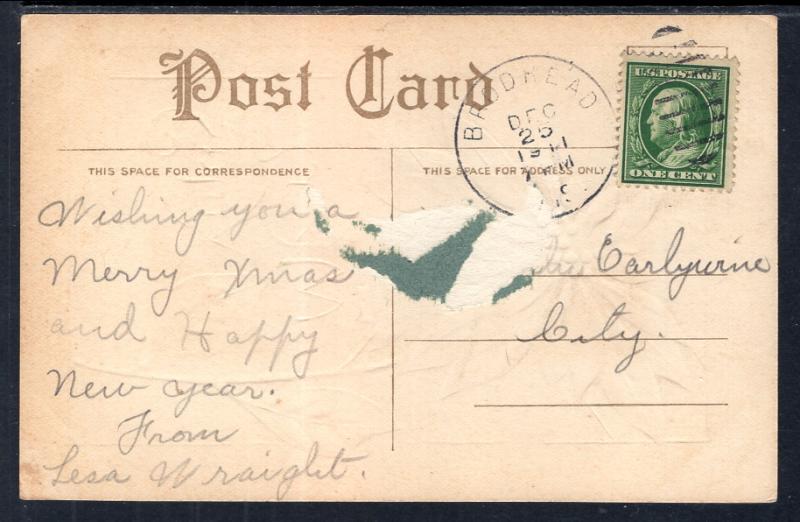 Post Card
BRODHEAD
DEC
25
U.S. POSTAGE
ONE CENT
THIS SPACE FOR CORRESPONDENCE
THIS SPACE FOR ADDRESS ONLY
Wishing you a
Merry Xmas
and Happy
New year.
From
Lesa Wraight.
Earlywine
City.